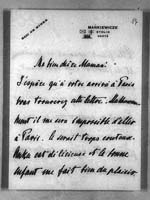 MARKIEWICZE
STOLIN
Ma bien chère Maman!
J'espère qu'à votre arrivée à Paris
vous trouverez cette lettre. Malheureuse-
ment il me sera impossible d'aller
à Paris. Le serait trop
est délicieuse et la bonne
enfant me fait bien du plaisir